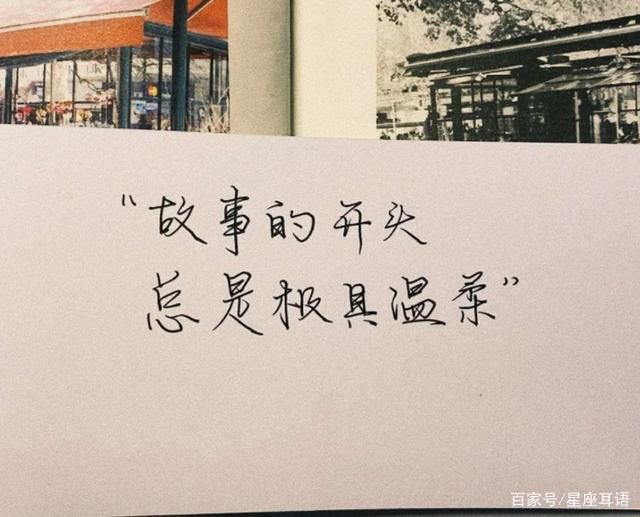 “故事的开头
总是极具温柔”
百家号/星座耳语